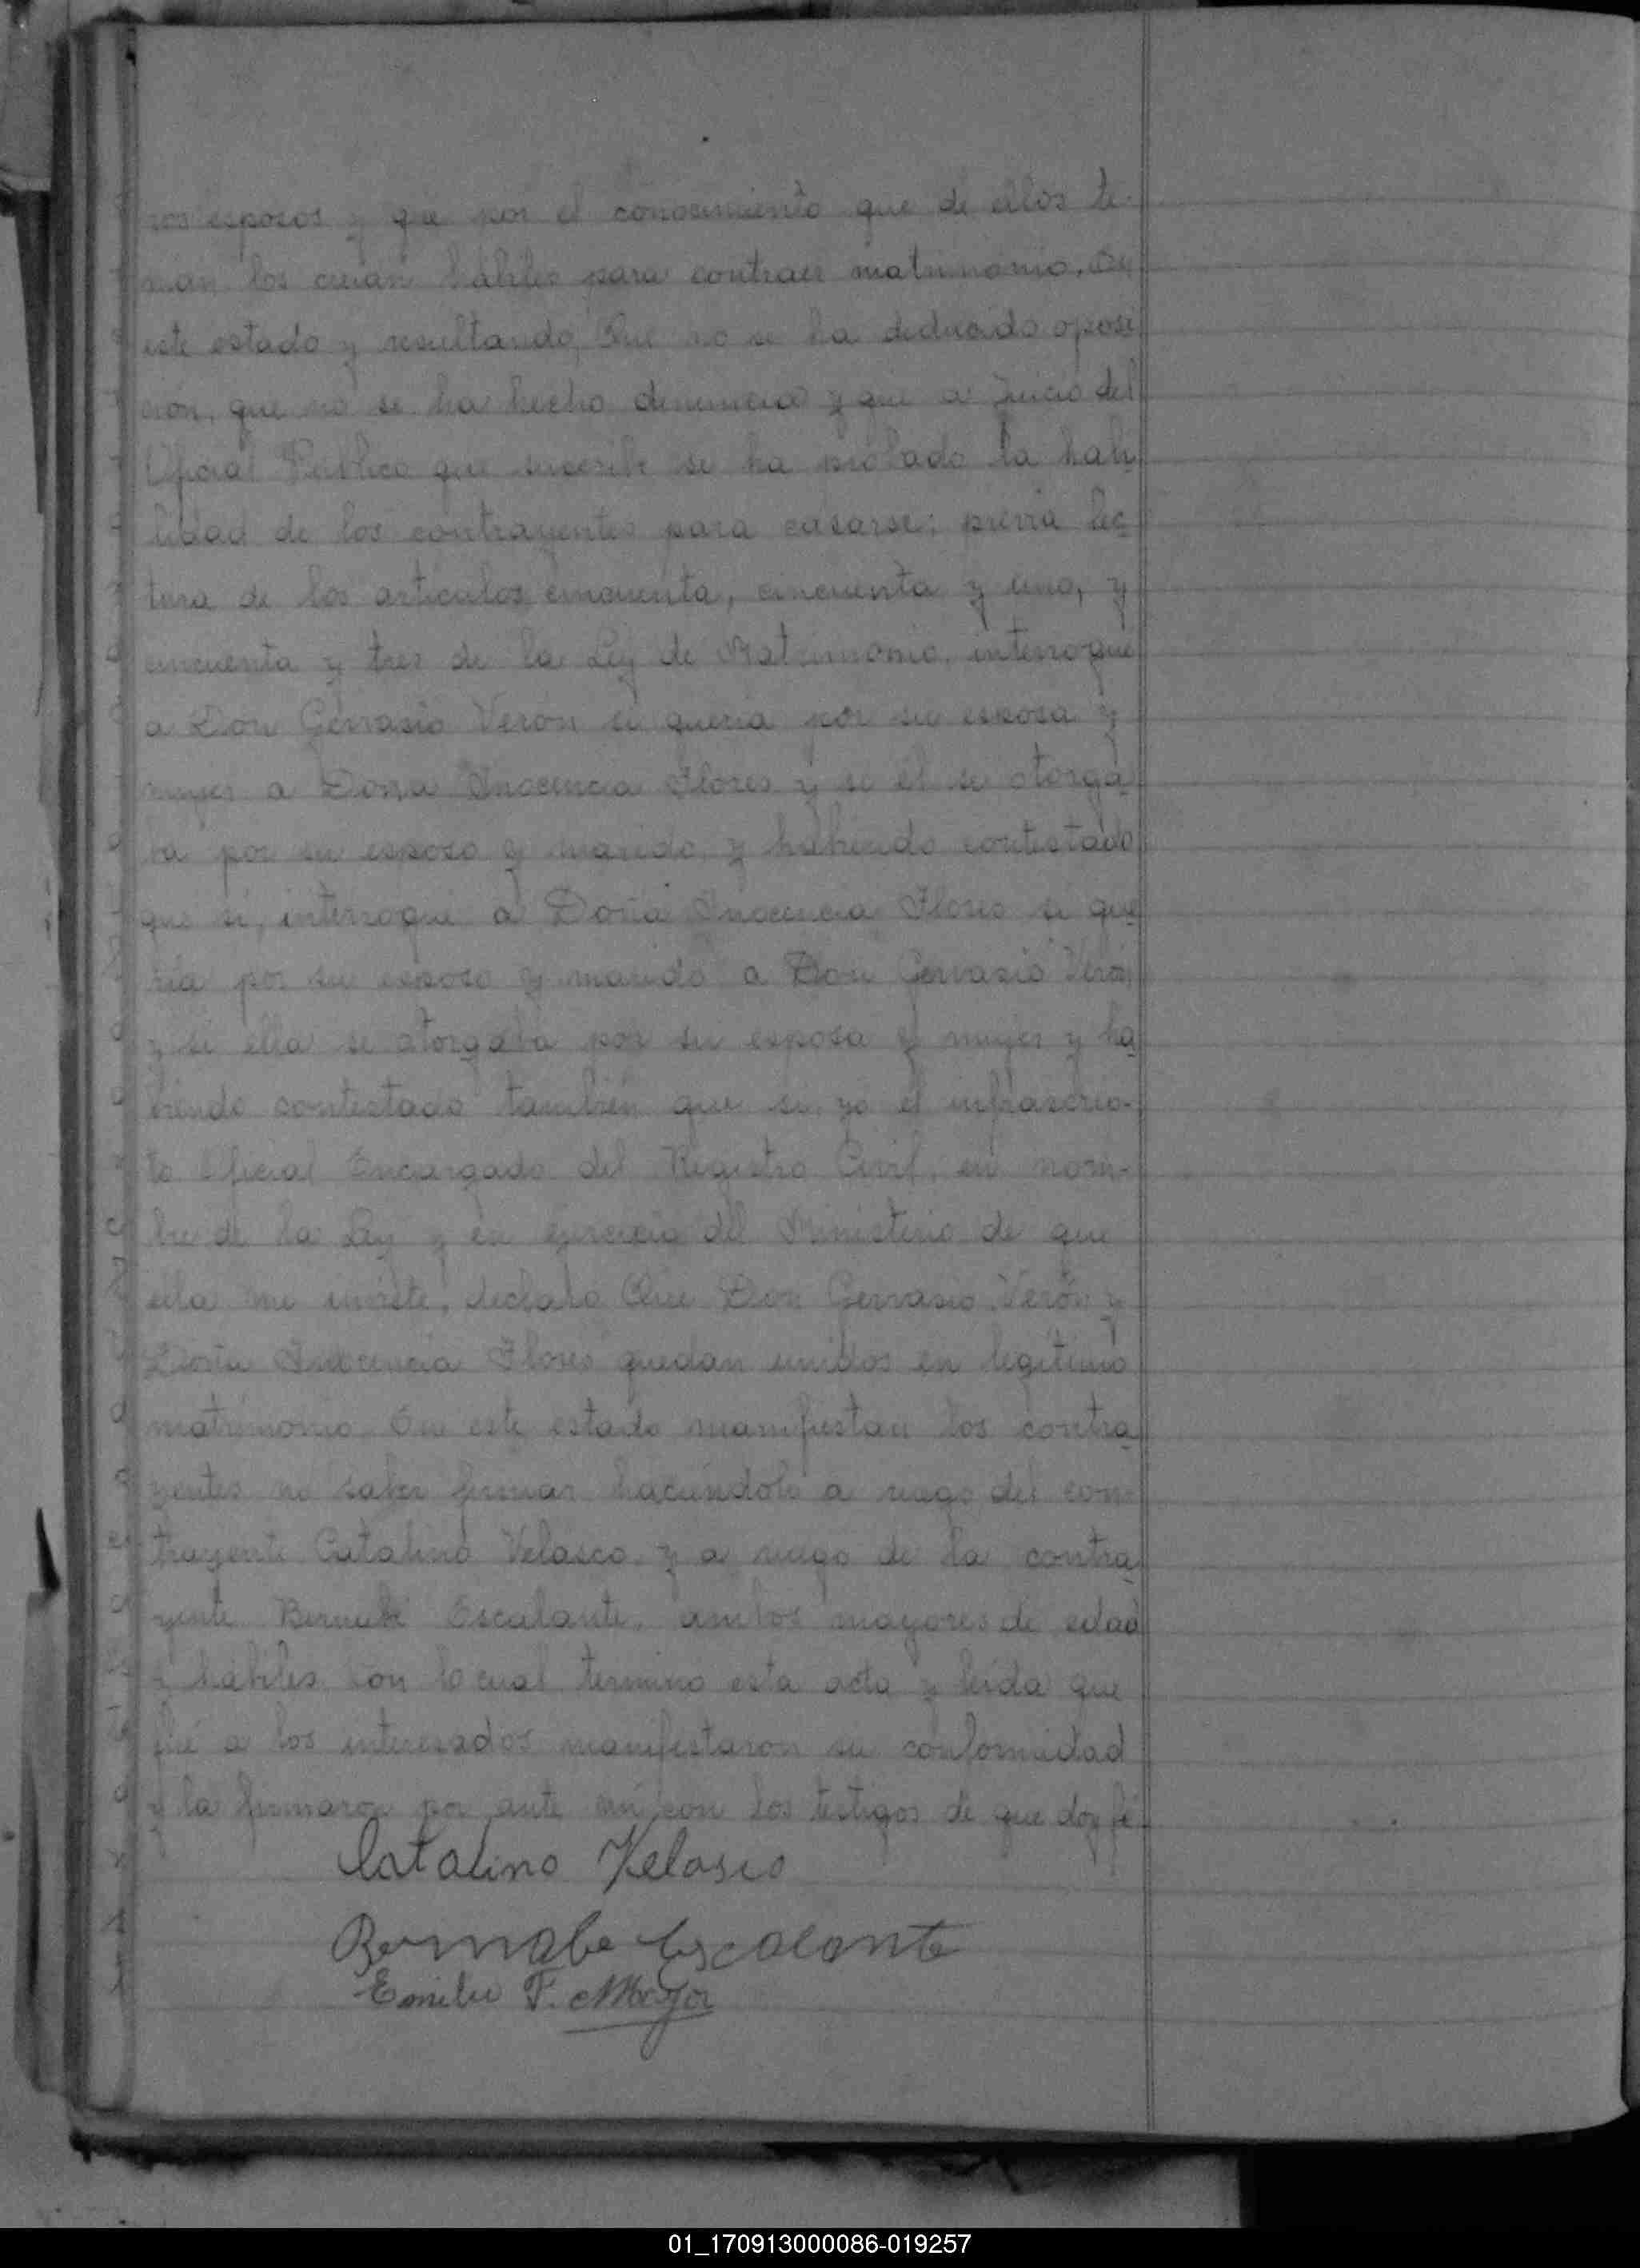 ros esposos y que por el conocimiento que de ellos te-
nian los creian habiles para contraer matrimonio. En
este estado y resultando, Que no se ha deducido oposi
cion, que no se ha hecho denuncia y que a juicio del
Oficial Público que suscribe se ha probado la habi
lidad de los contrayentes para casarse; previa lec
tura de los articulos cincuenta, cincuenta y uno, y
cincuenta y tres de la Ley de Matrimonio, interrogué
a Don Gervasio Veron si queria por su esposa y
mujer a Doña Inocencia Flores y si el se otorga
ba por su esposo y marido, y habiendo contestado
que si, interrogué a Doña Inocencia Flores si que
ria por su esposo y marido a Don Gervasio Veron
y si ella se otorgaba por su esposa y mujer y ha
biendo contestado también que si, yo el infrascrip-
to Oficial Encargado del Registro Civil, en nom-
bre de la Ley y en ejercicio del Ministerio de que
ella me inviste, declaro Que Don Gervasio Verón y
Doña Inocencia Flores quedan unidos en legítimo
matrimonio. En este estado manifiestan los contra
yentes no saber firmar haciéndolo a ruego del con-
trayente Catalino Velasco y a ruego de la contra
yente Bernabé Escalante, ambos mayores de edad
y hábiles. Con lo cual terminó esta acta y leida que
fué a los interesados manifestaron su conformidad
y la firmaron por ante mí con los testigos de que doy fé
Catalino Velasco
Bernabe Escalante
Emilio F. Mayor